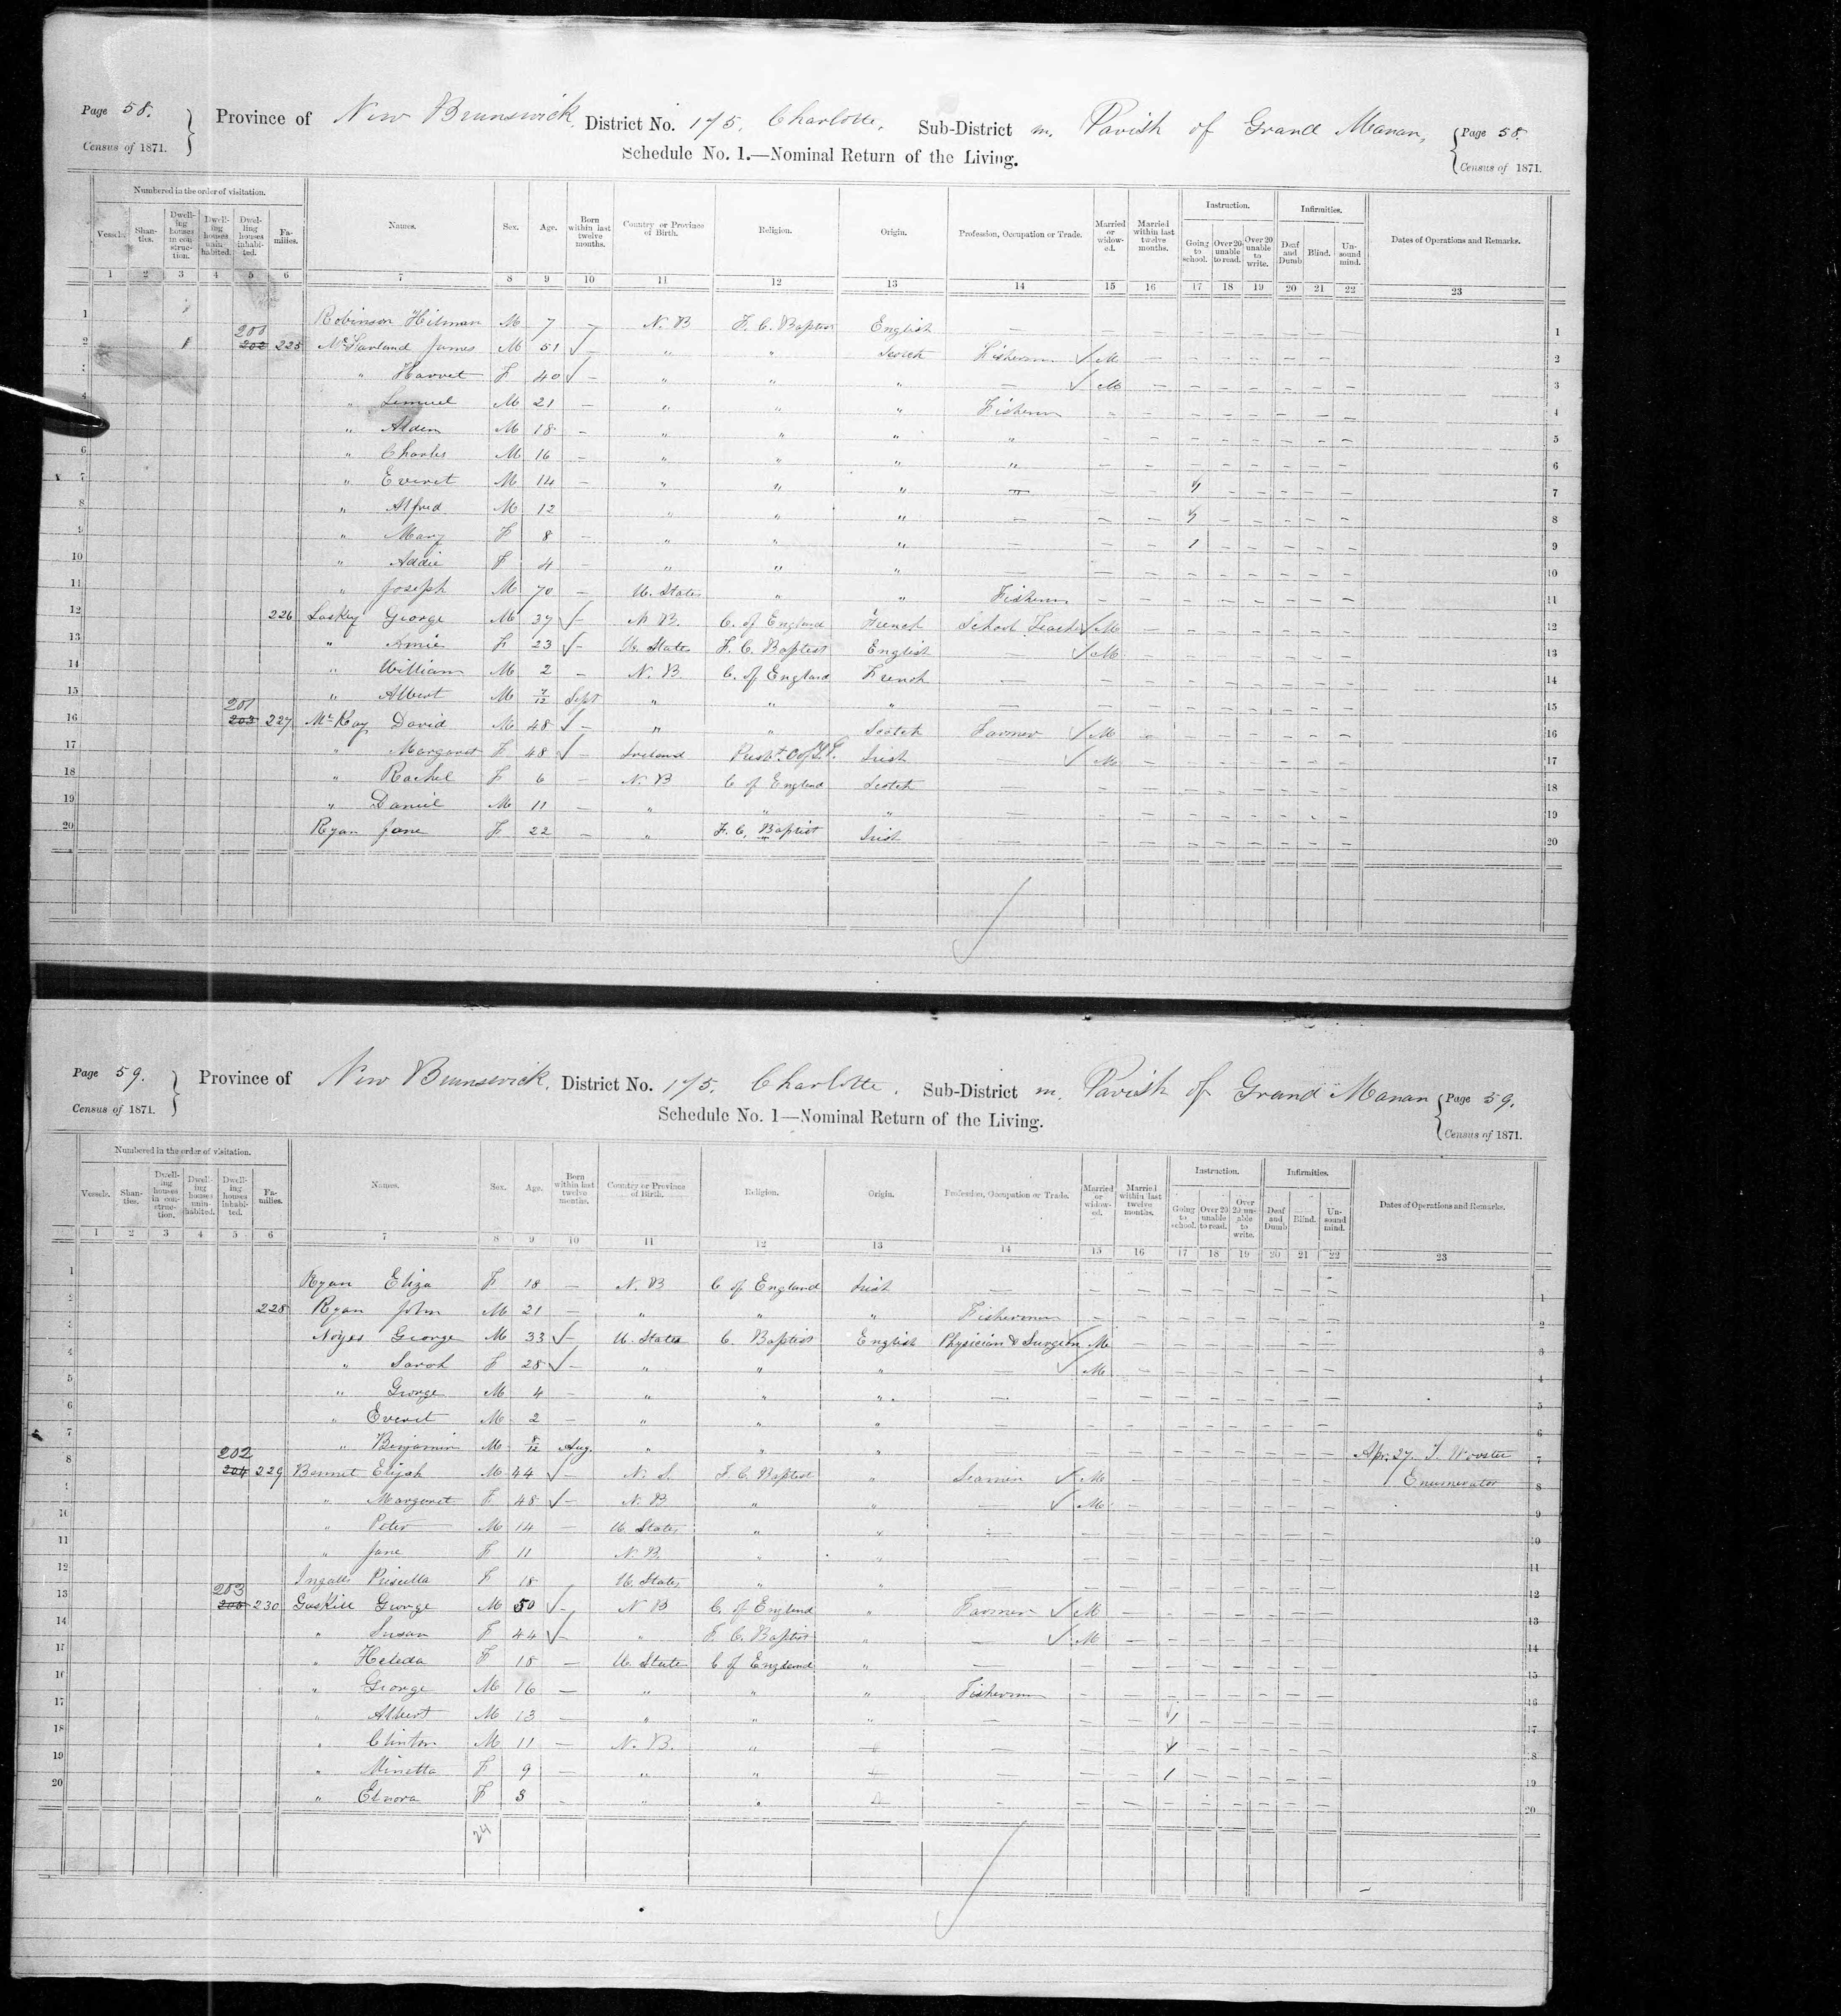 Page 58. Province of New Brunswick. District No. 175. Charlotte. Sub-District m. Parish of Grand Manan, Page 58.
Census of 1871. Schedule No. 1.—Nominal Return of the Living. Census of 1871.
Numbered in the order of visitation. Instruction. Infirmities.
Vessels. Shan-ties. Dwell-ing houses in con-struc-tion. Dwell-ing houses unin-habited. Dwel-ling houses inhabi-ted. Fa-milies. Names. Sex. Age. Born within last twelve months. Country or Province of Birth. Religion. Origin. Profession, Occupation or Trade. Married or widow-ed. Married within last twelve months. Going to school. Over 20 unable to read. Over 20 unable to write. Deaf and Dumb Blind. Un-sound mind. Dates of Operations and Remarks.
1 2 3 4 5 6 7 8 9 10 11 12 13 14 15 16 17 18 19 20 21 22 23
1 Robinson Hilman M 7 – N. B F. C. Baptist English — 1
2 200 202 225 McFarland James M 51 – " " Scotch Fisherman M 2
3 " Harret F 40 – " " " — M 3
4 " Lemuel M 21 – " " " Fisherm 4
5 " Alden M 18 – " " " " 5
6 " Charles M 16 – " " " " 6
7 " Everet M 14 – " " " 1 7
8 " Alfred M 12 " " " — 1 8
9 " Mary F 8 – " " " — 1 9
10 " Addie F 4 – " " " — 10
11 " Joseph M 70 – U. States " " Fisherm 11
12 226 Laskey George M 37 – N B. C. of England French School Teacher M 12
13 " Annie F 23 – U. States F. C. Baptist English — M 13
14 " William M 2 – N. B C. of England French — 14
15 " Albert M 7/12 Sept " " " — 15
16 201 203 227 McKay David M 48 – " " Scotch Farmer M 16
17 " Margaret F 48 – Ireland Irish — M 17
18 " Rachel F 6 – N. B C of England Scotch — 18
19 " Daniel M 11 – " " " — 19
20 Ryan Jane F 22 – " F. C. Baptist Irish — 20
Page 59. Province of New Brunswick. District No. 175. Charlotte. Sub-District m. Parish of Grand Manan Page 59.
Census of 1871. Schedule No. 1—Nominal Return of the Living. Census of 1871.
Numbered in the order of visitation. Instruction. Infirmities.
Vessels. Shan-ties. Dwell-ing houses in con-struc-tion. Dwell-ing houses unin-habited. Dwell-ing houses inhabi-ted. Fa-milies. Names. Sex. Age. Born within last twelve months. Country or Province of Birth. Religion. Origin. Profession, Occupation or Trade. Married or widow-ed. Married within last twelve months. Going to school. Over 20 unable to read. Over 20 un-able to write. Deaf and Dumb Blind. Un-sound mind. Dates of Operations and Remarks.
1 2 3 4 5 6 7 8 9 10 11 12 13 14 15 16 17 18 19 20 21 22 23
1 Ryan Eliza F 18 – N. B C of England Irish — 1
2 228 Ryan John M 21 – " " " Fisherman 2
3 Noyes George M 33 – U. States C. Baptist English Physician & Surgeon M 3
4 " Sarah F 28 – " " " — M 4
5 " George M 4 – " " " — 5
6 " Everet M 2 – " " " — 6
7 " Benjamin M 8/12 Aug. " " " — Apr. 27. J. Wooster 7
8 202 204 229 Bennet Elijah M 44 – N. S. F. C. Baptist " Seaman M Enumerator 8
9 " Margaret F 48 – N. B " " — M 9
10 " Peter M 14 – U. States " " — 10
11 " Jane F 11 N. B. " " — 11
12 Ingalls Priscilla F 18 U. States " " — 12
13 203 205 230 Gaskill George M 50 – N B C. of England " Farmer M 13
14 " Susan F 44 – " F. C. Baptist " — M 14
15 " Heleda F 18 – U. State C of England " — 15
16 " George M 16 – " " " Fisherman 16
17 " Albert M 13 – " " " — 1 17
18 " Clinton M 11 – N. B. " — 1 18
19 " Minetta F 9 – " " — 1 19
20 " Elnora F 3 – " " — 20
24